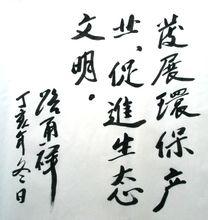 发展環保产
业，促進生态
文明。
路甬祥
丁亥年冬日